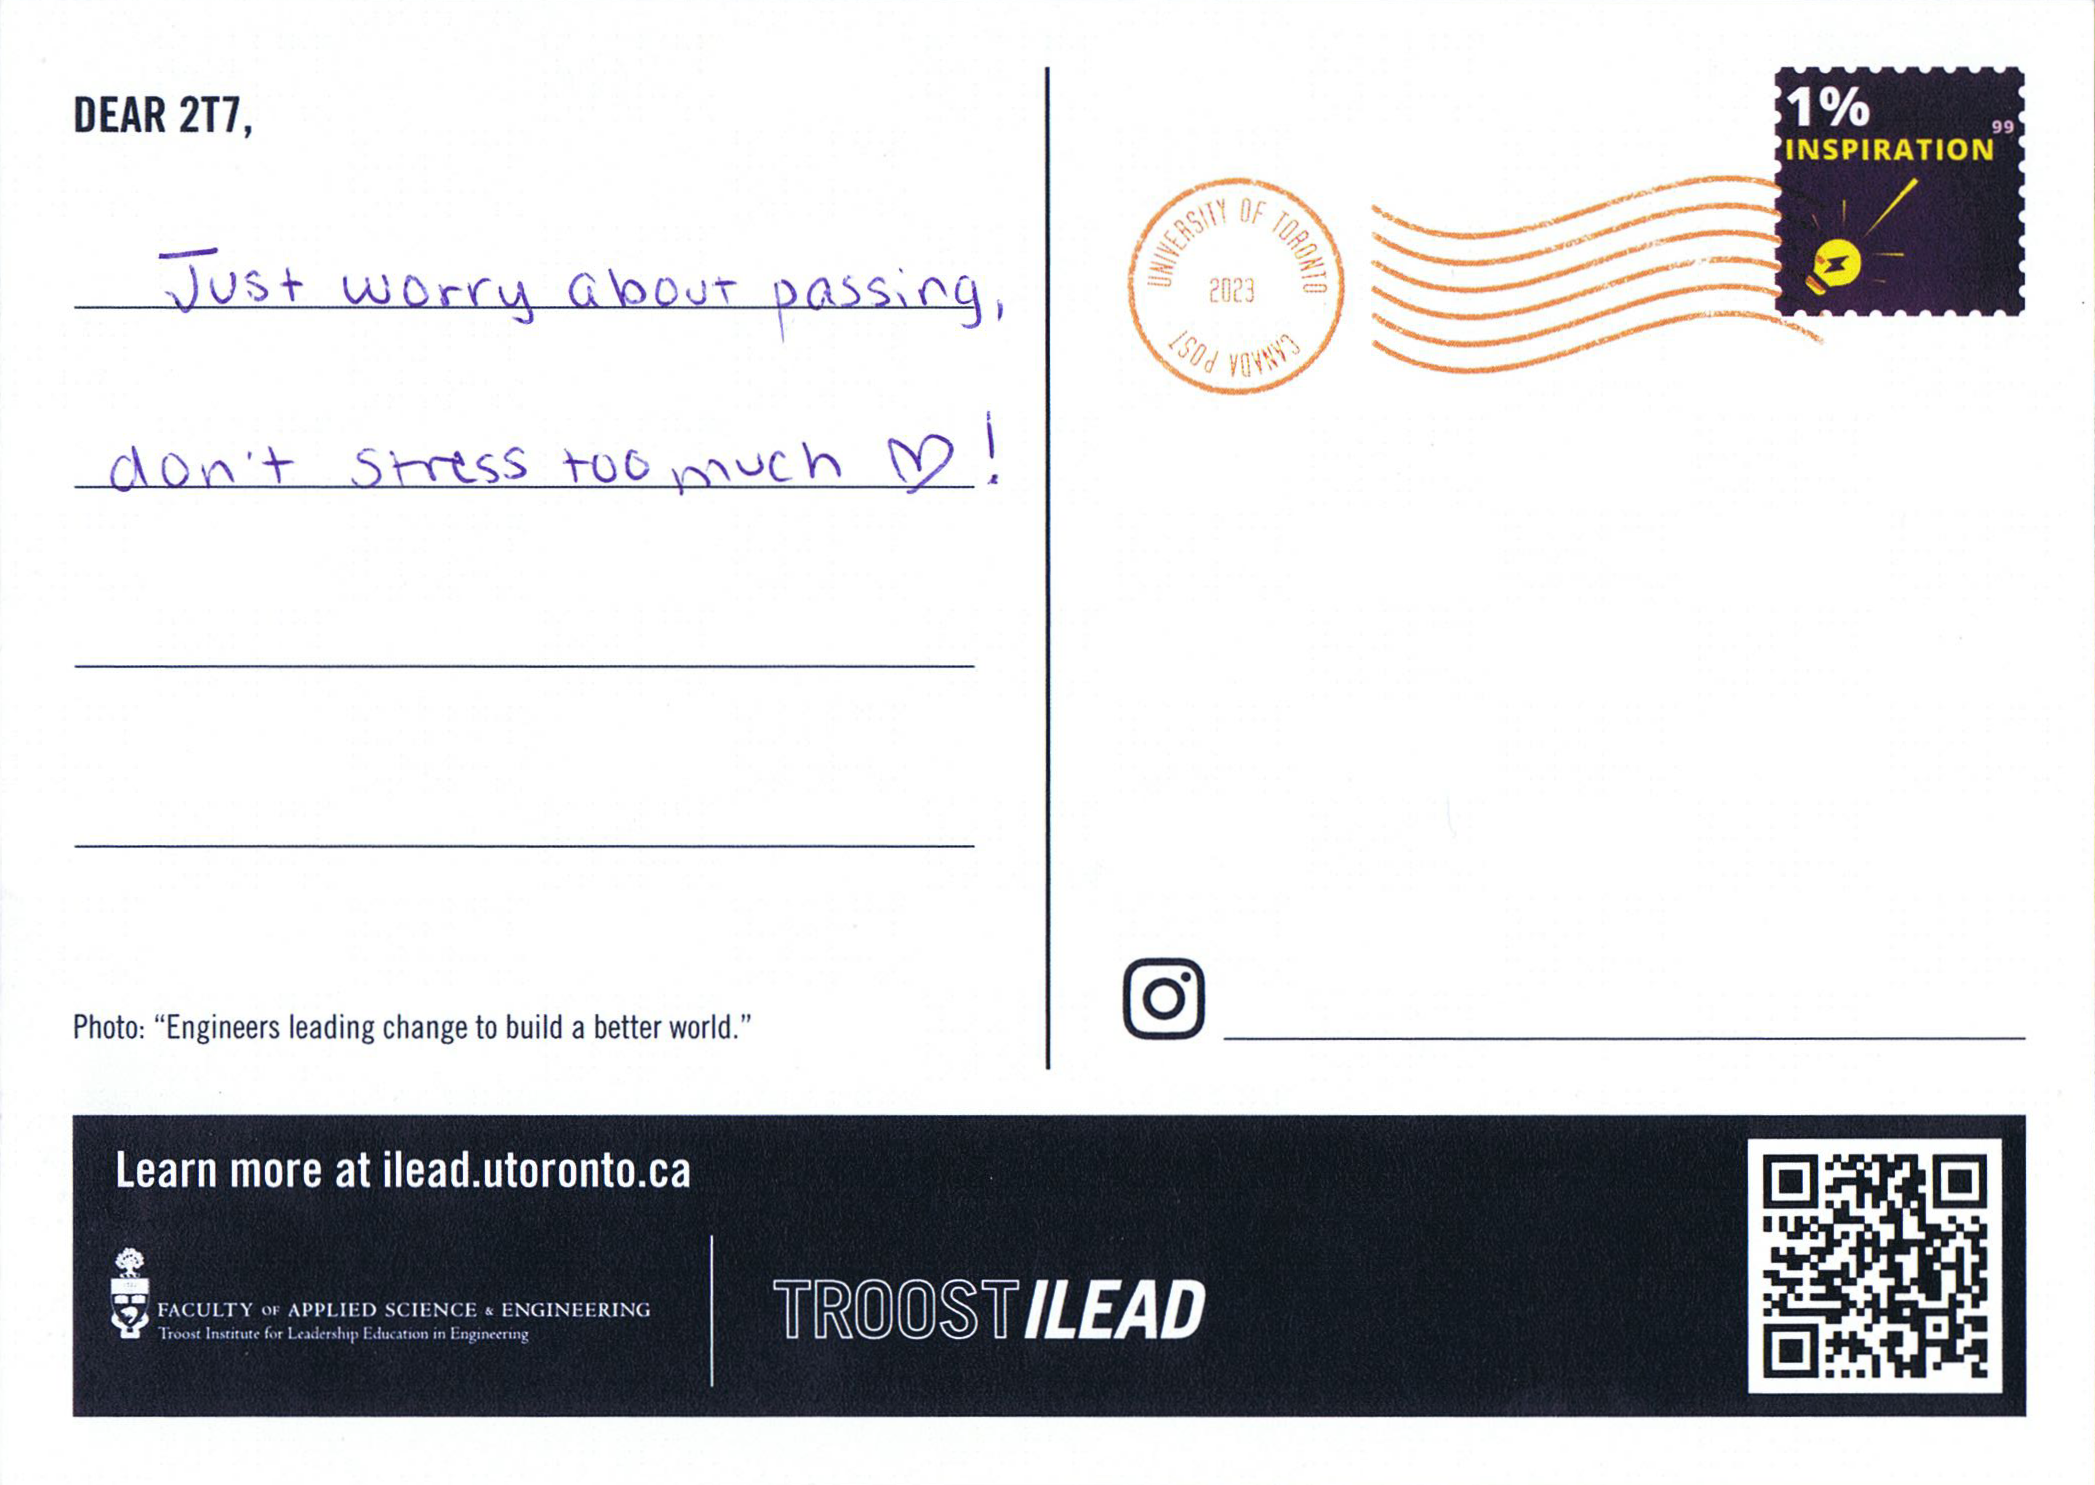 DEAR 2T7,
Just worry about passing,
don't stress too much ♡!
Photo: “Engineers leading change to build a better world.”
1%
99
INSPIRATION
UNIVERSITY OF TORONTO
2023
CANADA POST
Learn more at ilead.utoronto.ca
FACULTY OF APPLIED SCIENCE & ENGINEERING
Troost Institute for Leadership Education in Engineering
TROOST ILEAD